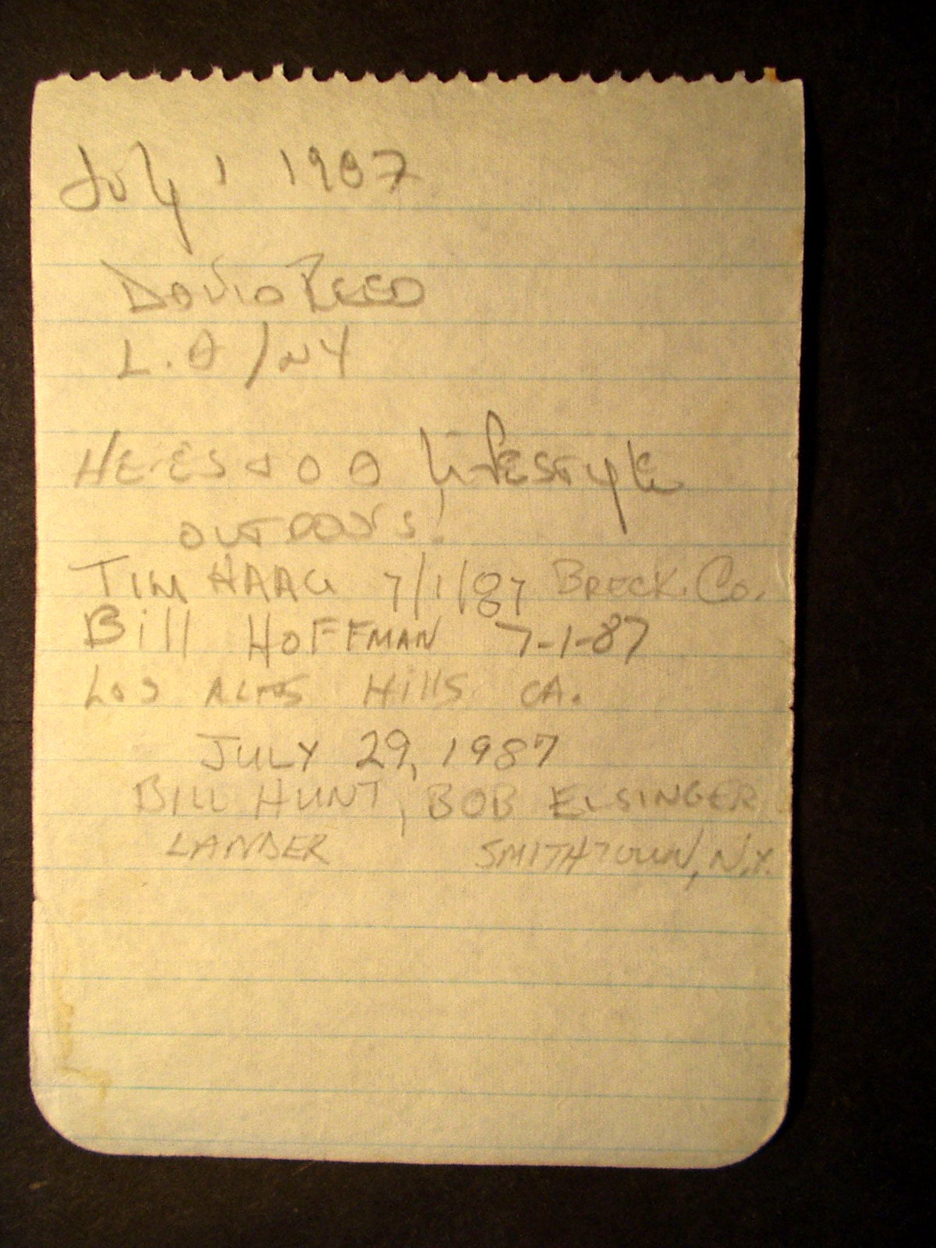 July 1 1987
David Reed
L.A / NY
HERES to a Lifestyle
OUTDOORS!
TIM HAAG 7/1/87 BRECK. Co.
Bill HOFFMAN 7-1-87
Los ALTOS Hills CA.
JULY 29, 1987
BILL HUNT, BOB ELSINGER
LANDER SMITHTOWN, N.Y.